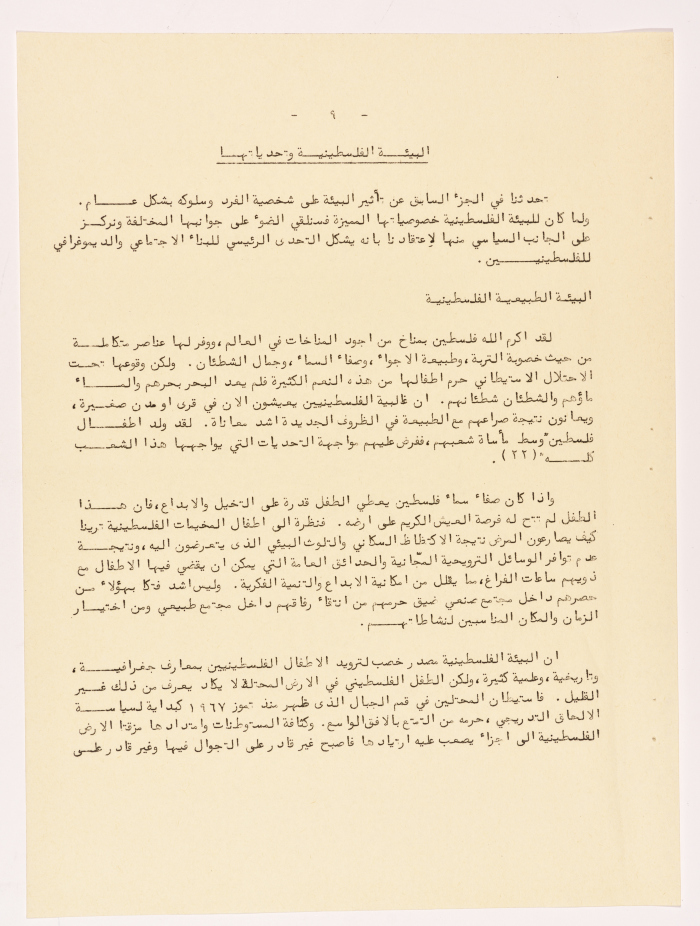 - ٩ -
البيئة الفلسطينية وتحدياتها
تحدثنا في الجزء السابق عن تأثير البيئة على شخصية الفرد وسلوكه بشكل عام .
ولما كان للبيئة الفلسطينية خصوصياتها المميزة فسنلقي الضوء على جوانبها المختلفة ونركز
على الجانب السياسي منها لإعتقادنا بانه يشكل التحدى الرئيسي للبناء الاجتماعي والديموغرافي
للفلسطينيين .
البيئة الطبيعية الفلسطينية
لقد اكرم الله فلسطين بمناخ من اجود المناخات في العالم ، ووفر لها عناصر متكاملة
من حيث خصوبة التربة ، وطبيعة الاجواء ، وصفاء السماء ، وجمال الشطئان . ولكن وقوعها تحت
الاحتلال الاستيطاني حرم اطفالها من هذه النعم الكثيرة فلم يعد البحر بحرهم والماء
ماؤهم والشطئان شطئانهم . ان غالبية الفلسطينيين يعيشون الان في قرى او مدن صغيرة ،
ويعانون نتيجة صراعهم مع الطبيعة في الظروف الجديدة اشد معاناة . لقد ولد اطفال
فلسطين "وسط مأساة شعبهم ، ففرض عليهم مواجهة التحديات التي يواجهها هذا الشعب
كله" (٢٢) .
واذا كان صفاء سماء فلسطين يعطي الطفل قدرة على التخيل والابداع ، فان هذا
الطفل لم تتح له فرصة العيش الكريم على ارضه . فنظرة الى اطفال المخيمات الفلسطينية ترينا
كيف يصارعون المرض نتيجة الاكتظاظ السكاني والتلوث البيئي الذى يتعرضون اليه ، ونتيجة
عدم توافر الوسائل الترويحية المجّانية والحدائق العامة التي يمكن ان يقضي فيها الاطفال مع
ذويهم ساعات الفراغ ، مما يقلل من امكانية الابداع والتنمية الفكرية . وليس اشد فتكا بهؤلاء من
حصرهم داخل مجتمع صنعي ضيق حرمهم من انتقاء رفاقهم داخل مجتمع طبيعي ومن اختيار
الزمان والمكان المناسبين لنشاطاتهم .
ان البيئة الفلسطينية مصدر خصب لتزويد الاطفال الفلسطينيين بمعارف جغرافية ،
وتاريخية ، وعلمية كثيرة ، ولكن الطفل الفلسطيني في الارض المحتلة لا يكاد يعرف من ذلك غير
القليل . فاستيطان المحتلين في قمم الجبال الذى ظهر منذ تموز ١٩٦٧ كبداية لسياسة
الالحاق التدريجي ، حرمه من التمتع بالافق الواسع . وكثافة المستوطنات وامتدادها مزقتا الارض
الفلسطينية الى اجزاء يصعب عليه ارتيادها فاصبح غير قادر على التجوال فيها وغير قادر على